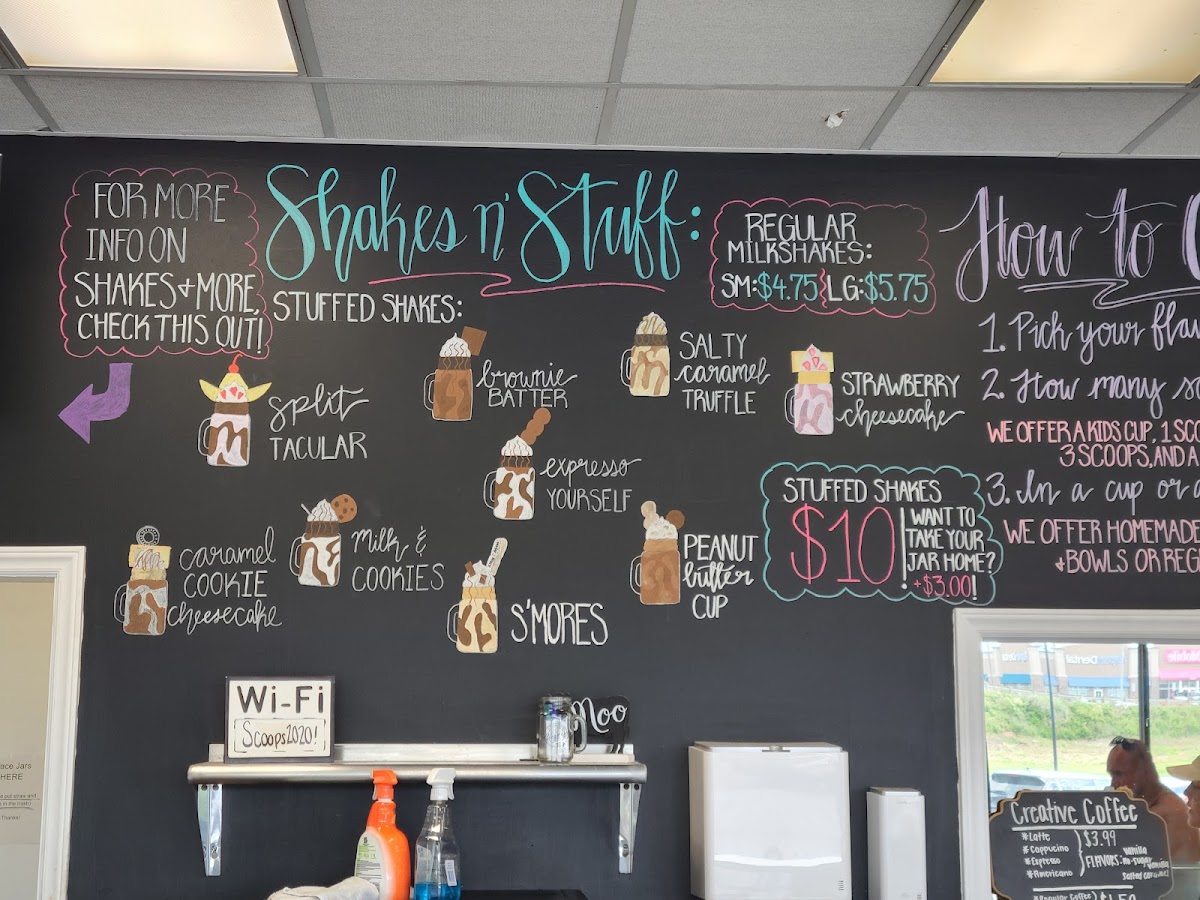 FOR MORE
INFO ON
SHAKES + MORE,
CHECK THIS OUT!
Shakes n' Stuff:
STUFFED SHAKES:
REGULAR
MILKSHAKES:
SM: $4.75 LG: $5.75
split
TACULAR
brownie
BATTER
SALTY
caramel
TRUFFLE
STRAWBERRY
cheesecake
expresso
YOURSELF
caramel
COOKIE
cheesecake
Milk &
COOKIES
S'MORES
PEANUT
butter
CUP
STUFFED SHAKES
$10
WANT TO
TAKE YOUR
JAR HOME?
+$3.00!
How to
1. Pick your
2. How many
WE OFFER A KIDS CUP, 1
3 SCOOPS, AND A
3. In a cup or
WE OFFER HOMEMADE
+ BOWLS OR
Wi-Fi
Scoops2020!
Moo
Jars
HERE
Thanks!
Dental
Mobile
Creative Coffee
*Latte
*Cappucino
*Espresso
*Americano
$3.99
FLAVORS: vanilla
no-sugar vanilla
salted